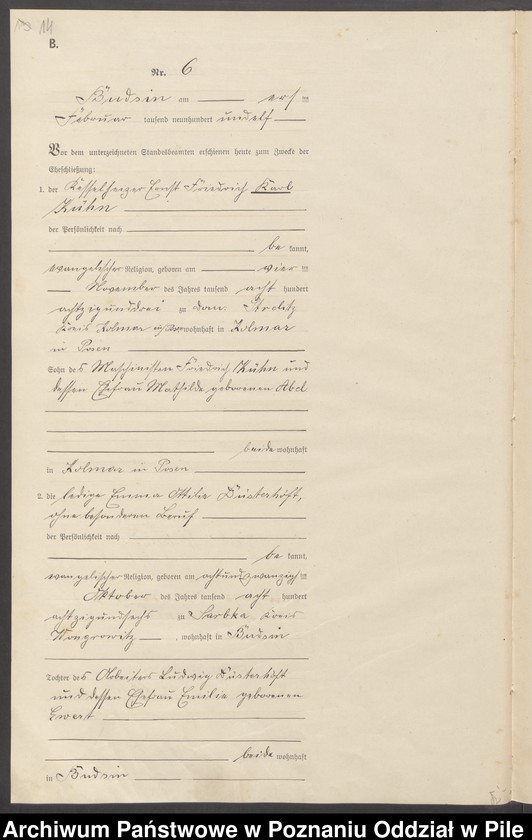 14
B.
Nr. 6
Budsin am erf ten
Februar tausend neunhundert undelf
Vor dem unterzeichneten Standesbeamten erschienen heute zum Zwecke der
Eheschließung:
1. der Kesselheizer Ernst Friedrich Karl
Kühn
der Persönlichkeit nach
be kannt,
evangelischer Religion, geboren am vier ten
November des Jahres tausend acht hundert
achtzigunddrei zu Dom. Strelitz
Kreis Kolmar wohnhaft in Kolmar
in Posen
Sohn des Maschinisten Friedrich Kühn und
dessen Ehefrau Mathilde geborenen Abel
beide wohnhaft
in Kolmar in Posen
2. die ledige Emma Ottilie Düsterhöft,
ohne besonderen Beruf
der Persönlichkeit nach
be kannt,
evangelischer Religion, geboren am achtundzwanzig ten
Oktober des Jahres tausend acht hundert
achtzigundsechs zu Sarbka Kreis
Wongrowitz , wohnhaft in Budsin
Tochter des Arbeiters Ludwig Düsterhöft
und dessen Ehefrau Emilie geborenen
Ewert
beide wohnhaft
in Budsin
Archiwum Państwowe w Poznaniu Oddział w Pile